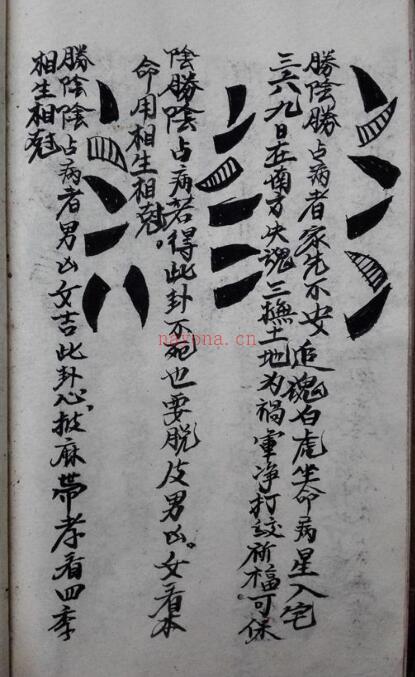 勝陰勝占病者家先不安追魂白虎坐命病星入宅
三六九日在南方失魂三撫土地为禍軍净打紋祈福可保
陰勝陰占病若得此卦不死也要脱皮男凶。女看本
命用相生相尅。
勝陰陰占病者男凶女吉此卦心披麻帶孝看四季
相生相尅
naypna.cn